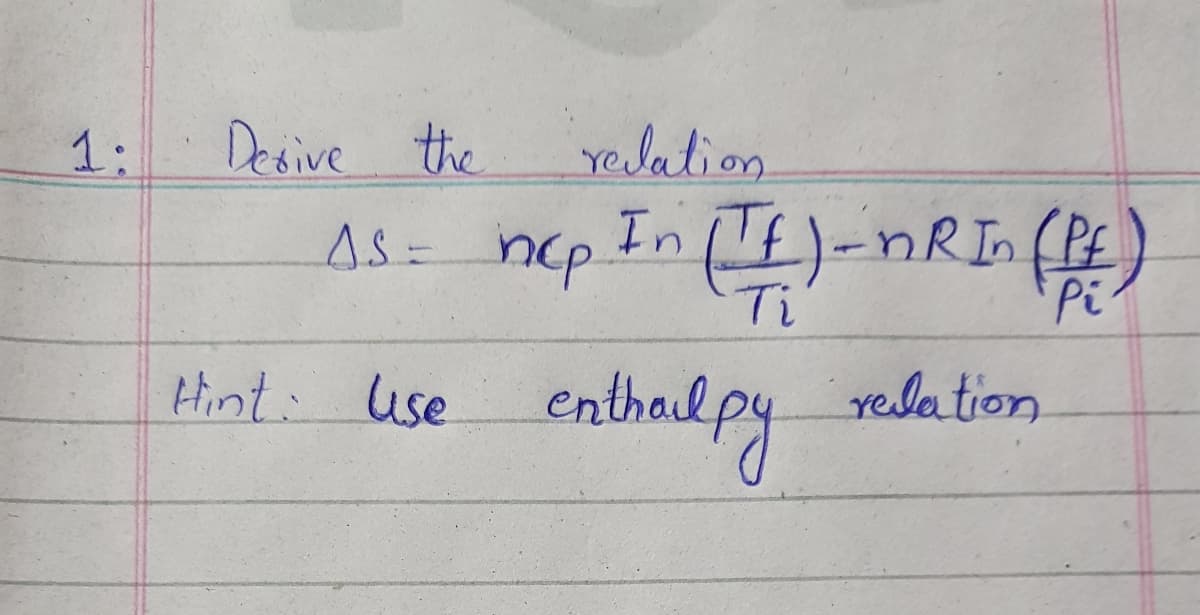 1: Derive the relation
ΔS = ncp In (Tf/Ti) - nR In (Pf/Pi)
Hint: Use enthalpy relation